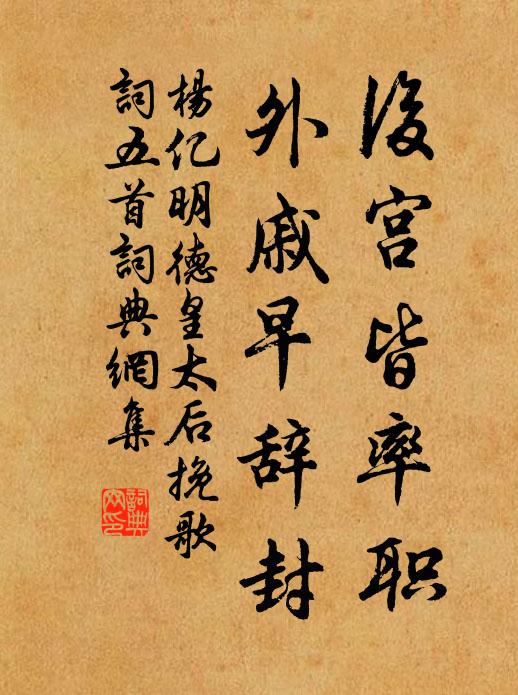 後宫皆率职
外戚早辞封
楊亿明德皇太后挽歌
詞五首詞典網集
詞典
网印